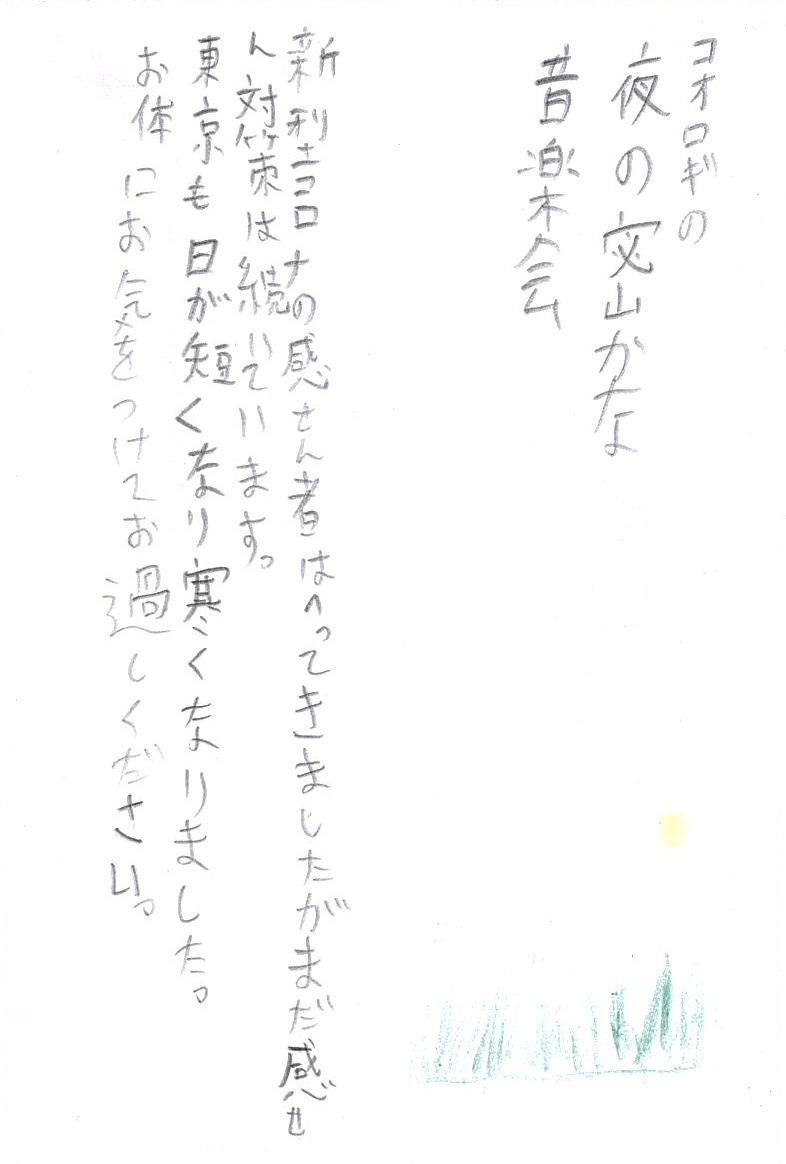 コオロギの
夜の密かな
昔楽会
新型コロナの感せん者はへってきましたがまだ感せ
ん対策は続いています。
東京も日が短くなり寒くなりました。
お体にお気をつけてお過しください。